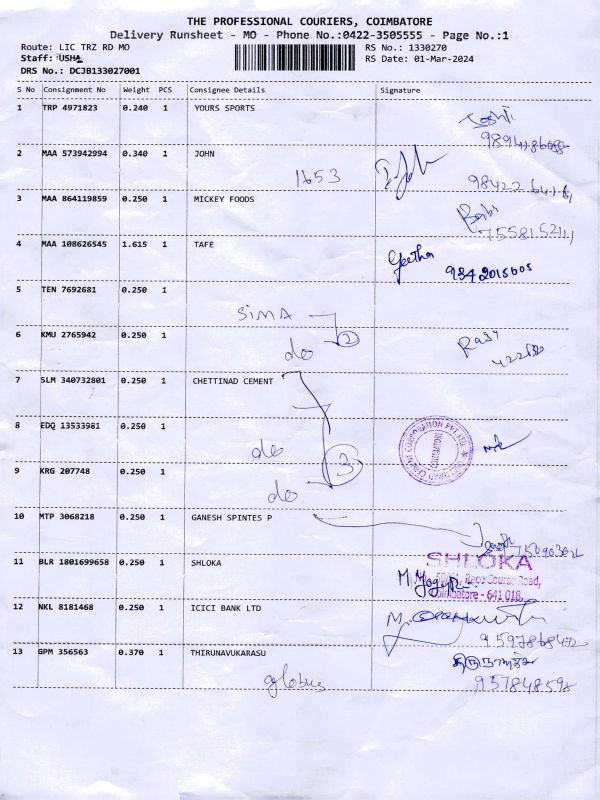 THE PROFESSIONAL COURIERS, COIMBATORE
Delivery Runsheet - MO - Phone No.:0422-3505555 - Page No.:1
Route: LIC TRZ RD MO RS No.: 1330270
Staff: USHA RS Date: 01-Mar-2024
DRS No.: DCJB133027001
S No Consignment No Weight PCS Consignee Details Signature
1 TRP 4971823 0.240 1 YOURS SPORTS
2 MAA 573942994 0.340 1 JOHN
1653
3 MAA 864119859 0.250 1 MICKEY FOODS
4 MAA 108626545 1.615 1 TAFE Geetha
9342015605
5 TEN 7692681 0.250 1
SIMA
6 KMU 2765942 0.250 1
do 2
7 SLM 340732801 0.250 1 CHETTINAD CEMENT
8 EDQ 13533981 0.250 1
do
9 KRG 207748 0.250 1 3
do
10 MTP 3068218 0.250 1 GANESH SPINTES P
11 BLR 1801699658 0.250 1 SHLOKA SHLOKA
Race Course Road,
Coimbatore - 641 018.
12 NKL 8181468 0.250 1 ICICI BANK LTD
13 GPM 356563 0.370 1 THIRUNAVUKARASU
globus